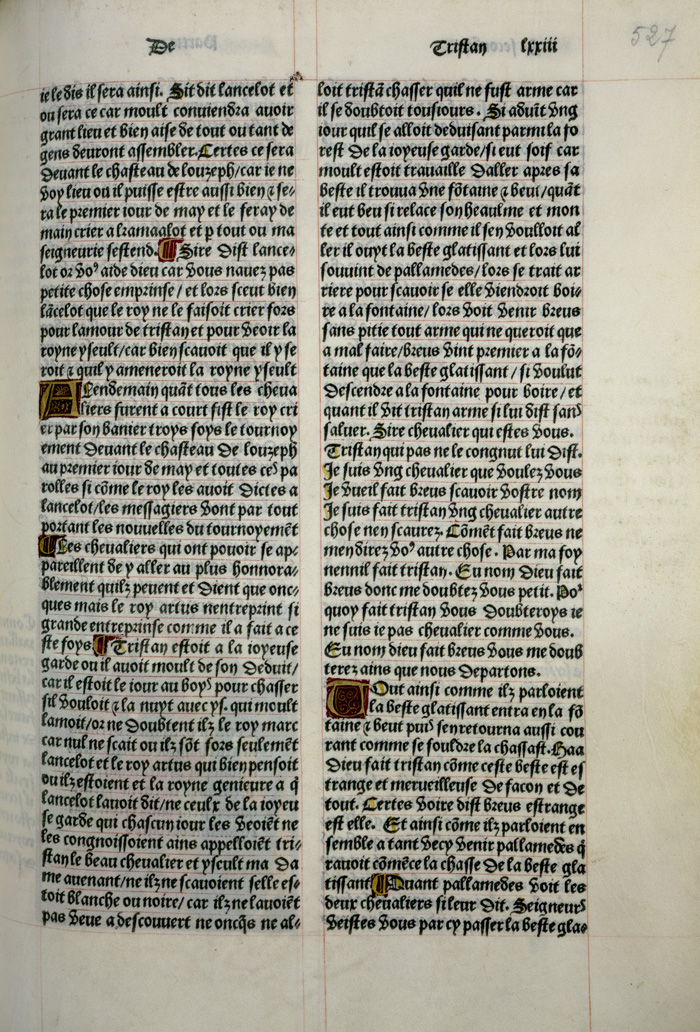 De
Tristan lxxiii
527
ie le dis il sera ainsi. Sit dit lancelot et
ou sera ce car moult conuiendra auoir
grant lieu et bien aise de tout ou tant de
gens deuront assembler. Certes ce sera
deuant le chasteau de louzeph/car ie ne
voy lieu ou il puisse estre aussi bien ⁊ se-
ra le premier iour de may et le feray de
main crier a kramaalot et ꝑ tout ou ma
seigneurie sestend. ¶ Sire dist lance-
lot or voꝰ aide dieu car vous nauez pas
petite chose emprinse / et lors sceut bien
lācelot que le roy ne le faisoit crier fors
pour lamour de tristan et pour veoir la
royne yseult/car bien scauoit que il y se
roit ⁊ quil y ameneroit la royne yseult
Lendemain quāt tous les cheua
liers furent a court fist le roy cri
er par son banier troys foys le tournoy
ement deuant le chasteau de louzeph
au premier iour de may et toutes ceˢ pa
rolles si cōme le roy les auoit dictes a
lancelot/les messagiers vont par tout
portant les nouuelles du tournoyemēt
¶ Les chevaliers qui ont pouoir se ap-
pareillent de y aller au plus honnora-
blement quilz peuent et dient que onc-
ques mais le roy artus nentreprint si
grande entreprinse comme il a fait a ce
ste foys. ¶ Tristan estoit a la ioyeuse
garde ou il auoit moult de son deduit/
car il estoit le iour au boyˢ pour chasser
sil vouloit ⁊ la nuyt auec ys. qui moult
lamoit/or ne doubtent ilz le roy marc
car nul ne scait ou ilz sōt fors seulemēt
lancelot et le roy artus qui bien pensoit
ou ilz estoient et la royne genieure a q̄
lancelot lauoit dit/ne ceulx de la ioyeu
se garde qui chascun iour les veoiēt ne
les congnoissoient ains appelloiēt tri-
stan le beau cheualier et yseult ma da
me auenant/ne ilz ne scauoient selle es-
toit blanche ou noire/ car ilz ne lauoiēt
pas veue a descouuert ne oncq̄s ne al-
loit tristā chasser quil ne fust arme car
il se doubtoit tousiours. Si aduīt vng
iour quil se alloit deduisant parmi la fo
rest de la ioyeuse garde/si eut soif car
moult estoit trauaille daller apres sa
beste il trouua vne fōtaine ⁊ beut/quāt
il eut beu si relace son heaulme et mon
te et tout ainsi comme il sen voulloit al
ler il ouyt la beste glatissant et lors lui
souuint de pallamedes/lors se trait ar
riere pour scauoir se elle viendroit boi-
re a la fontaine/ lors voit venir breus
sans pitie tout arme qui ne queroit que
a mal faire/breus vint premier a la fō-
taine que la beste glatissant / si voulut
descendre a la fontaine pour boire/ et
quant il vit tristan arme si lui dist sanˢ
saluer. Sire cheualier qui estes vous.
Tristan qui pas ne le congnut lui dist.
Je suis vng cheualier que voulez vous
Je vueil fait breus scauoir vostre nom
Je suis fait tristan vng cheualier autre
chose nen scaurez. Cōmēt fait breus ne
men direz voꝰ autre chose. Par ma foy
nennil fait tristan. Eu nom dieu fait
breus donc me doubtez vous petit. Poʳ
quoy fait tristan vous doubteroys ie
ne suis ie pas cheualier comme vous.
Eu nom dieu fait breus vous me doub
terez ains que nous departons.
Tout ainsi comme ilz parloient
la beste glatissant entra en la fō
taine ⁊ beut puiˢ sen retourna aussi cou
rant comme se fouldre la chassast. Haa
dieu fait tristan cōme ceste beste est es
trange et merueilleuse de facon et de
tout. Certes voire dist breus estrange
est elle. Et ainsi cōme ilz parloient en
semble a tant vecy venir pallamedes q̄
rauoit cōmēce la chasse de la beste gla
tissant ¶ Quant pallamedes voit les
deux cheualiers si leur dit. Seigneurˢ
veistes vous par cy passer la beste gla-